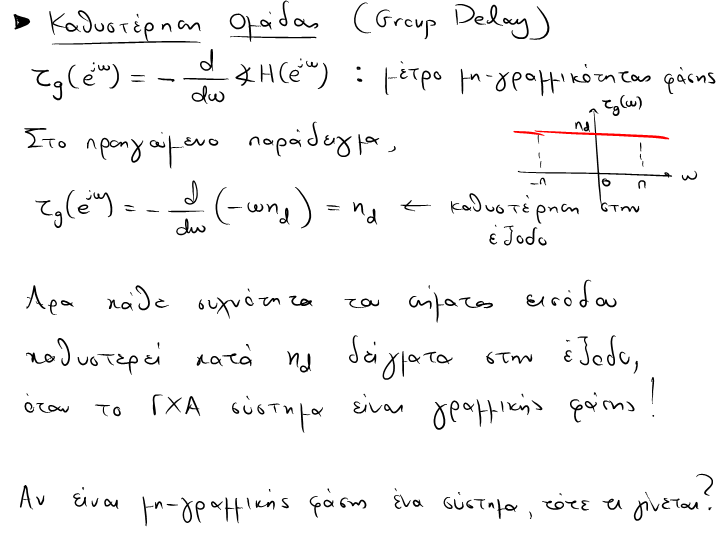 ► Καθυστέρηση Ομάδας (Group Delay)
τg(e^jω) = - d/dω ∡H(e^jω) : μέτρο μη-γραμμικότητας φάσης
τg(ω)
nd
-π 0 π ω
Στο προηγούμενο παράδειγμα,
τg(e^jω) = - d/dω (-ωnd) = nd ← καθυστέρηση στην
έξοδο
Άρα κάθε συχνότητα του σήματος εισόδου
καθυστερεί κατά nd δείγματα στην έξοδο,
όταν το ΓΧΑ σύστημα είναι γραμμικής φάσης!
Αν είναι μη-γραμμικής φάσης ένα σύστημα, τότε τι γίνεται?